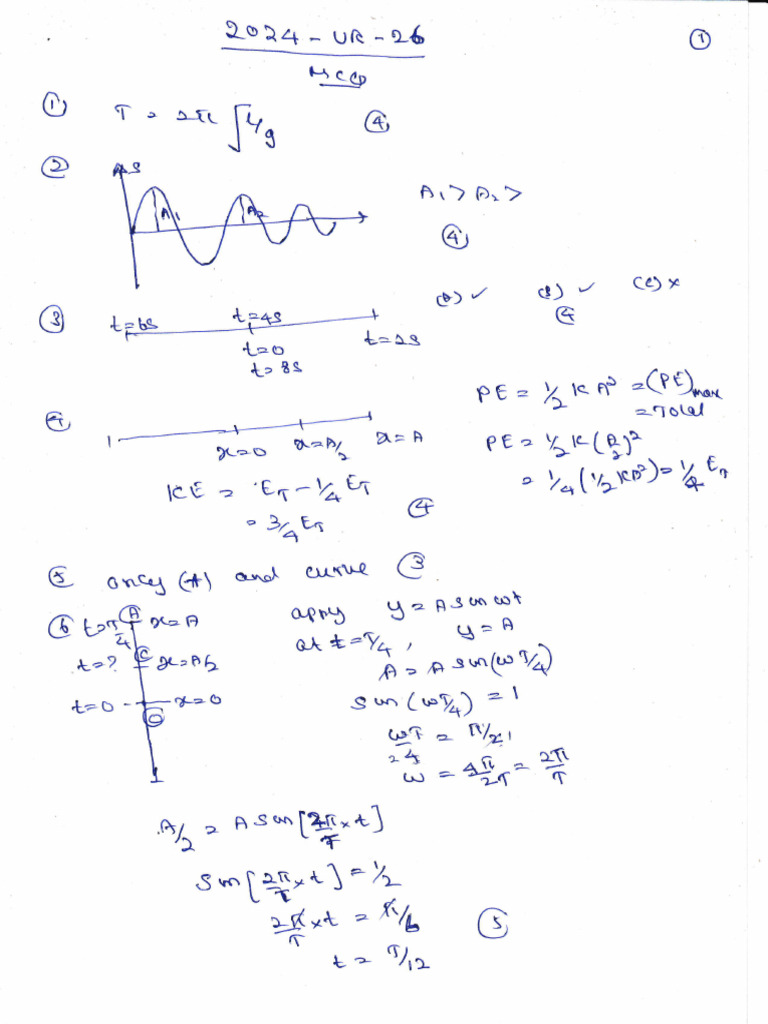 2024 - UR - 26
①
MCQ
① T = 2π √L/g ④
② S
A₁ A₂
A₁ > A₂ >
④
③ t=6s t=4s
t=0 t=2s
t=8s
(A) ✓ (B) ✓ (C) ×
④
④ x=0 x=A/2 x=A
PE = 1/2 KA² = (PE)max
= Total
PE = 1/2 K(A/2)²
= 1/4 (1/2 KA²) = 1/4 E_T
KE = E_T - 1/4 E_T
= 3/4 E_T ④
⑤ only (A) and curve ③
⑥ t=T/4 Ⓐ x=A
t=? Ⓒ x=A/2
t=0 x=0
Ⓞ
apply y = A sin ωt
at t = T/4, y = A
A = A sin(ωT/4)
sin(ωT/4) = 1
ωT/4 = π/2
ω = 4π/2T = 2π/T
A/2 = A sin[2π/T × t]
sin[2π/T × t] = 1/2
2π/T × t = π/6 ⑤
t = T/12